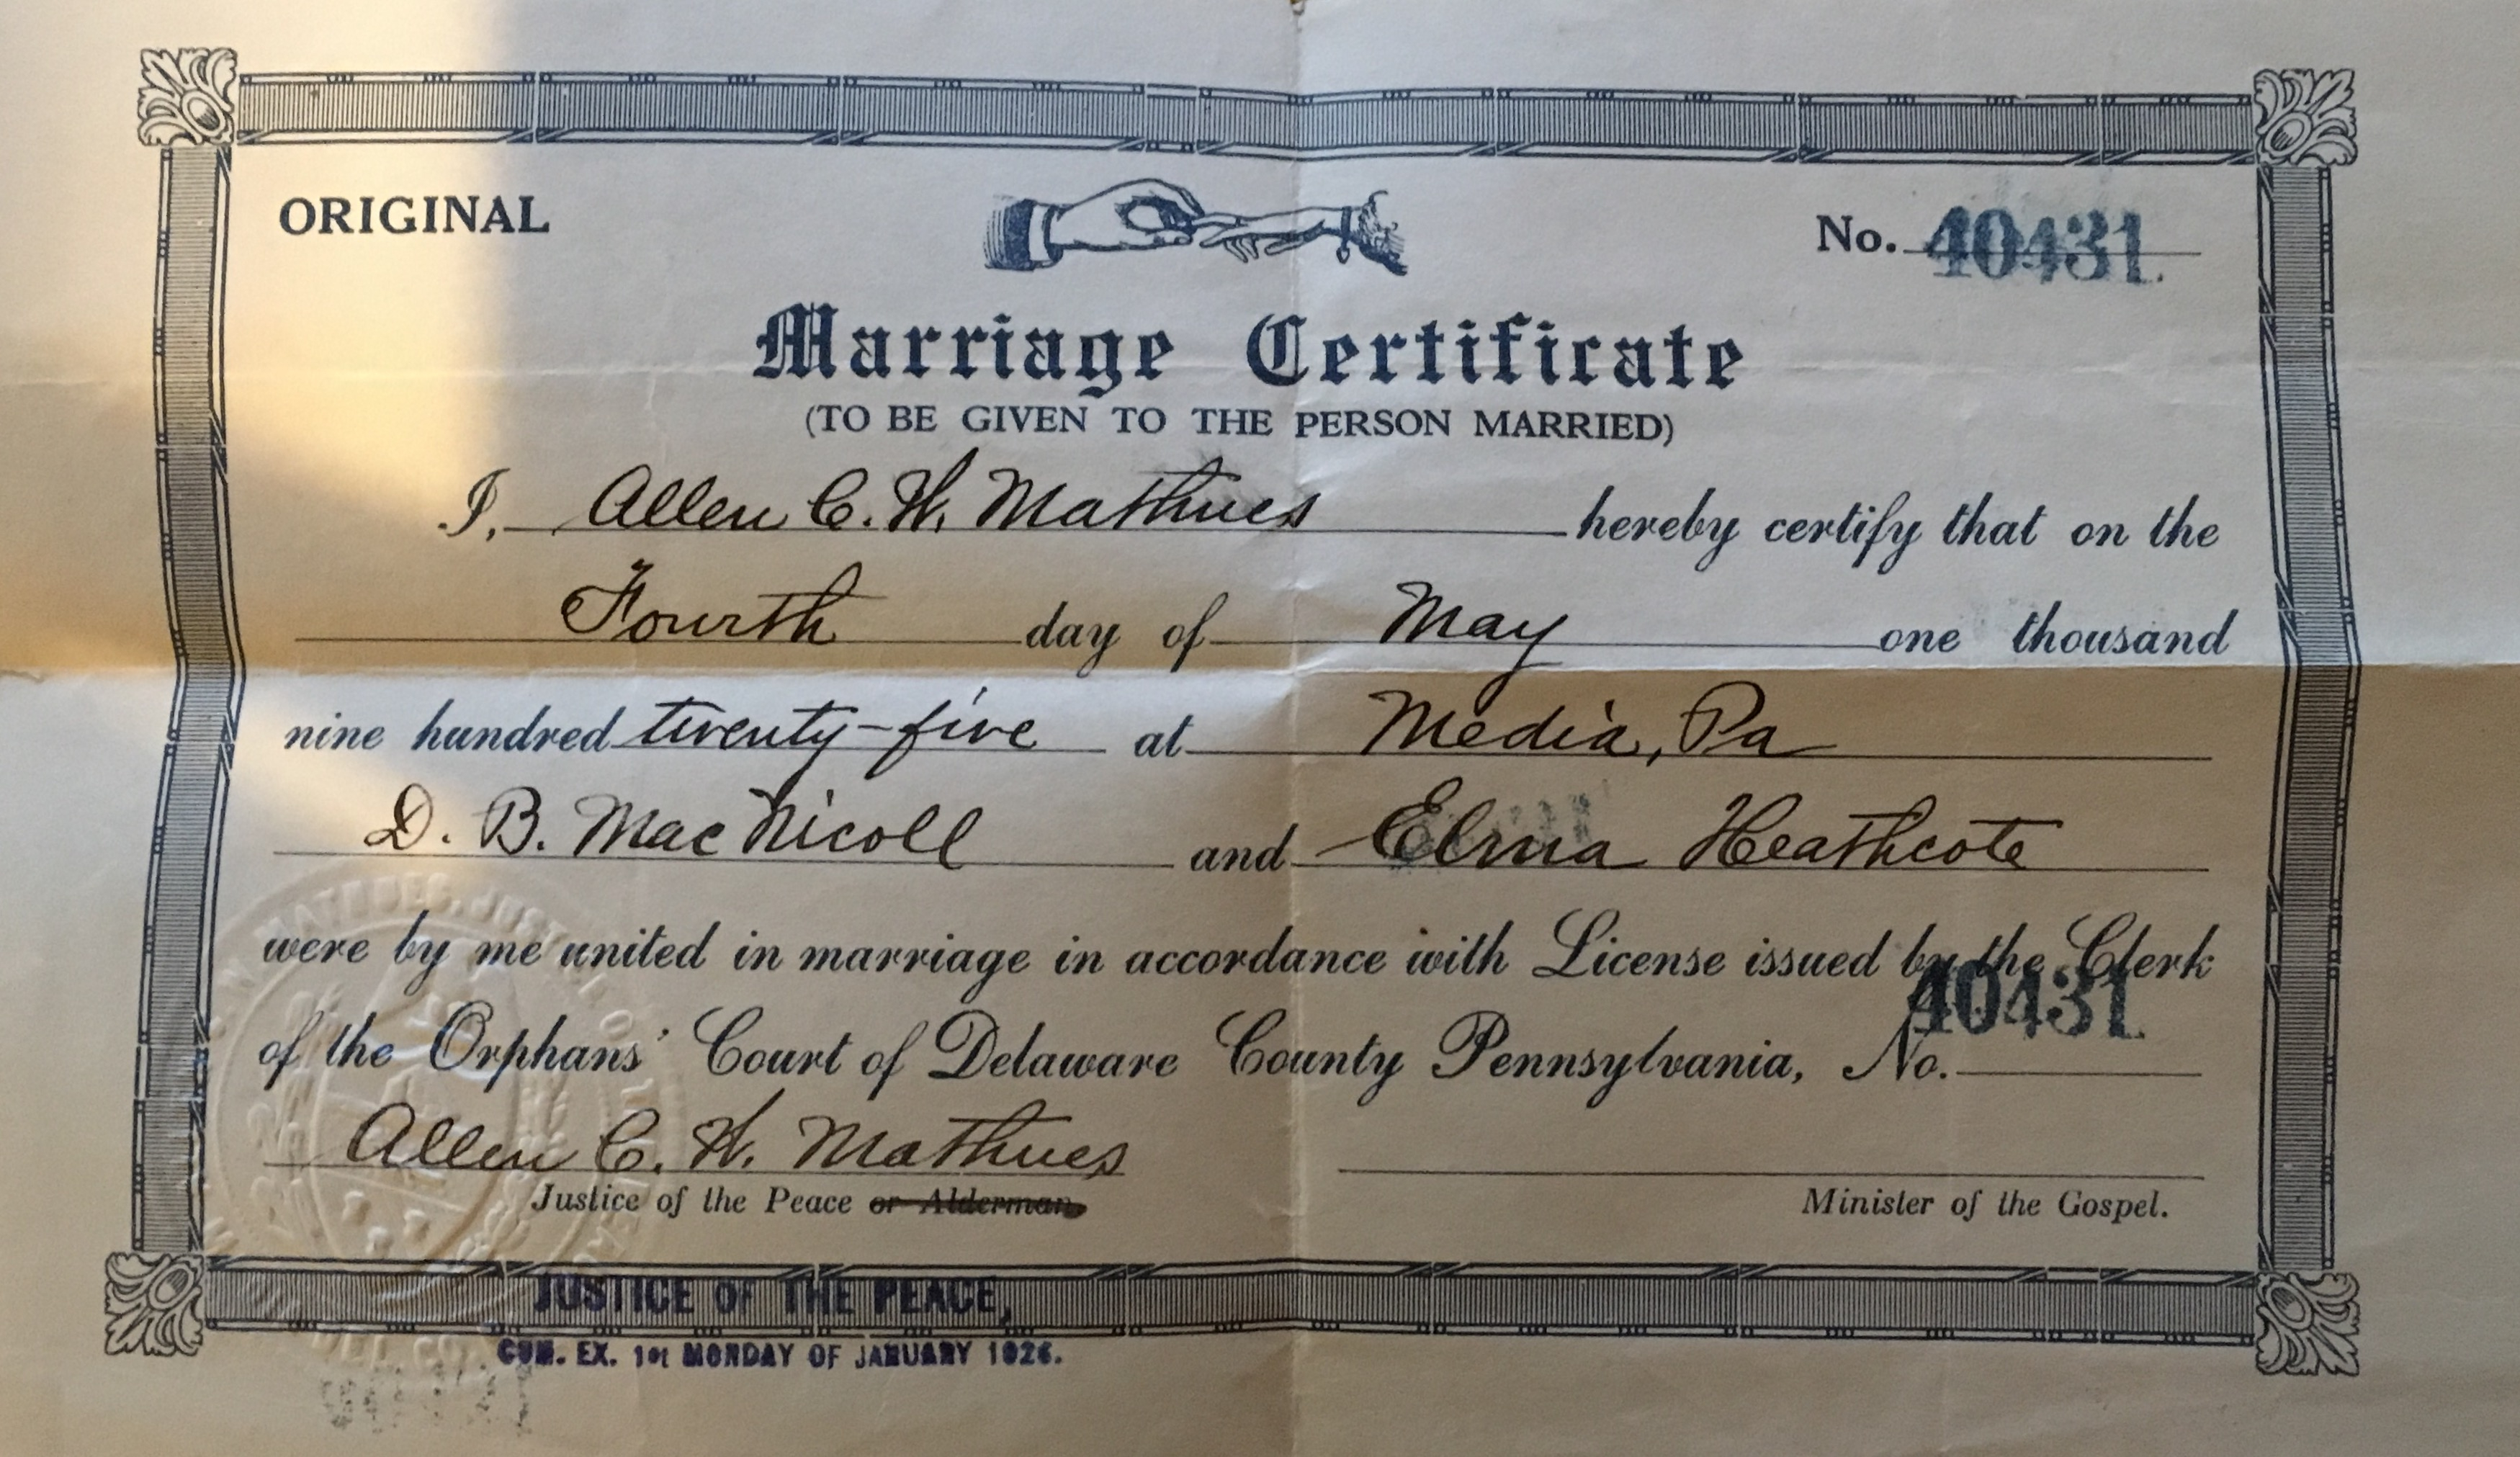 ORIGINAL
No. 40431
Marriage Certificate
(TO BE GIVEN TO THE PERSON MARRIED)
I, Allen C. H. Mathues hereby certify that on the
Fourth day of May one thousand
nine hundred twenty-five at Media, Pa
D. B. MacNicoll and Elma Heathcote
were by me united in marriage in accordance with License issued by the Clerk
of the Orphans' Court of Delaware County Pennsylvania, No. 40431
Allen C. H. Mathues
Justice of the Peace or Alderman
Minister of the Gospel.
JUSTICE OF THE PEACE,
COM. EX. 1st MONDAY OF JANUARY 1926.